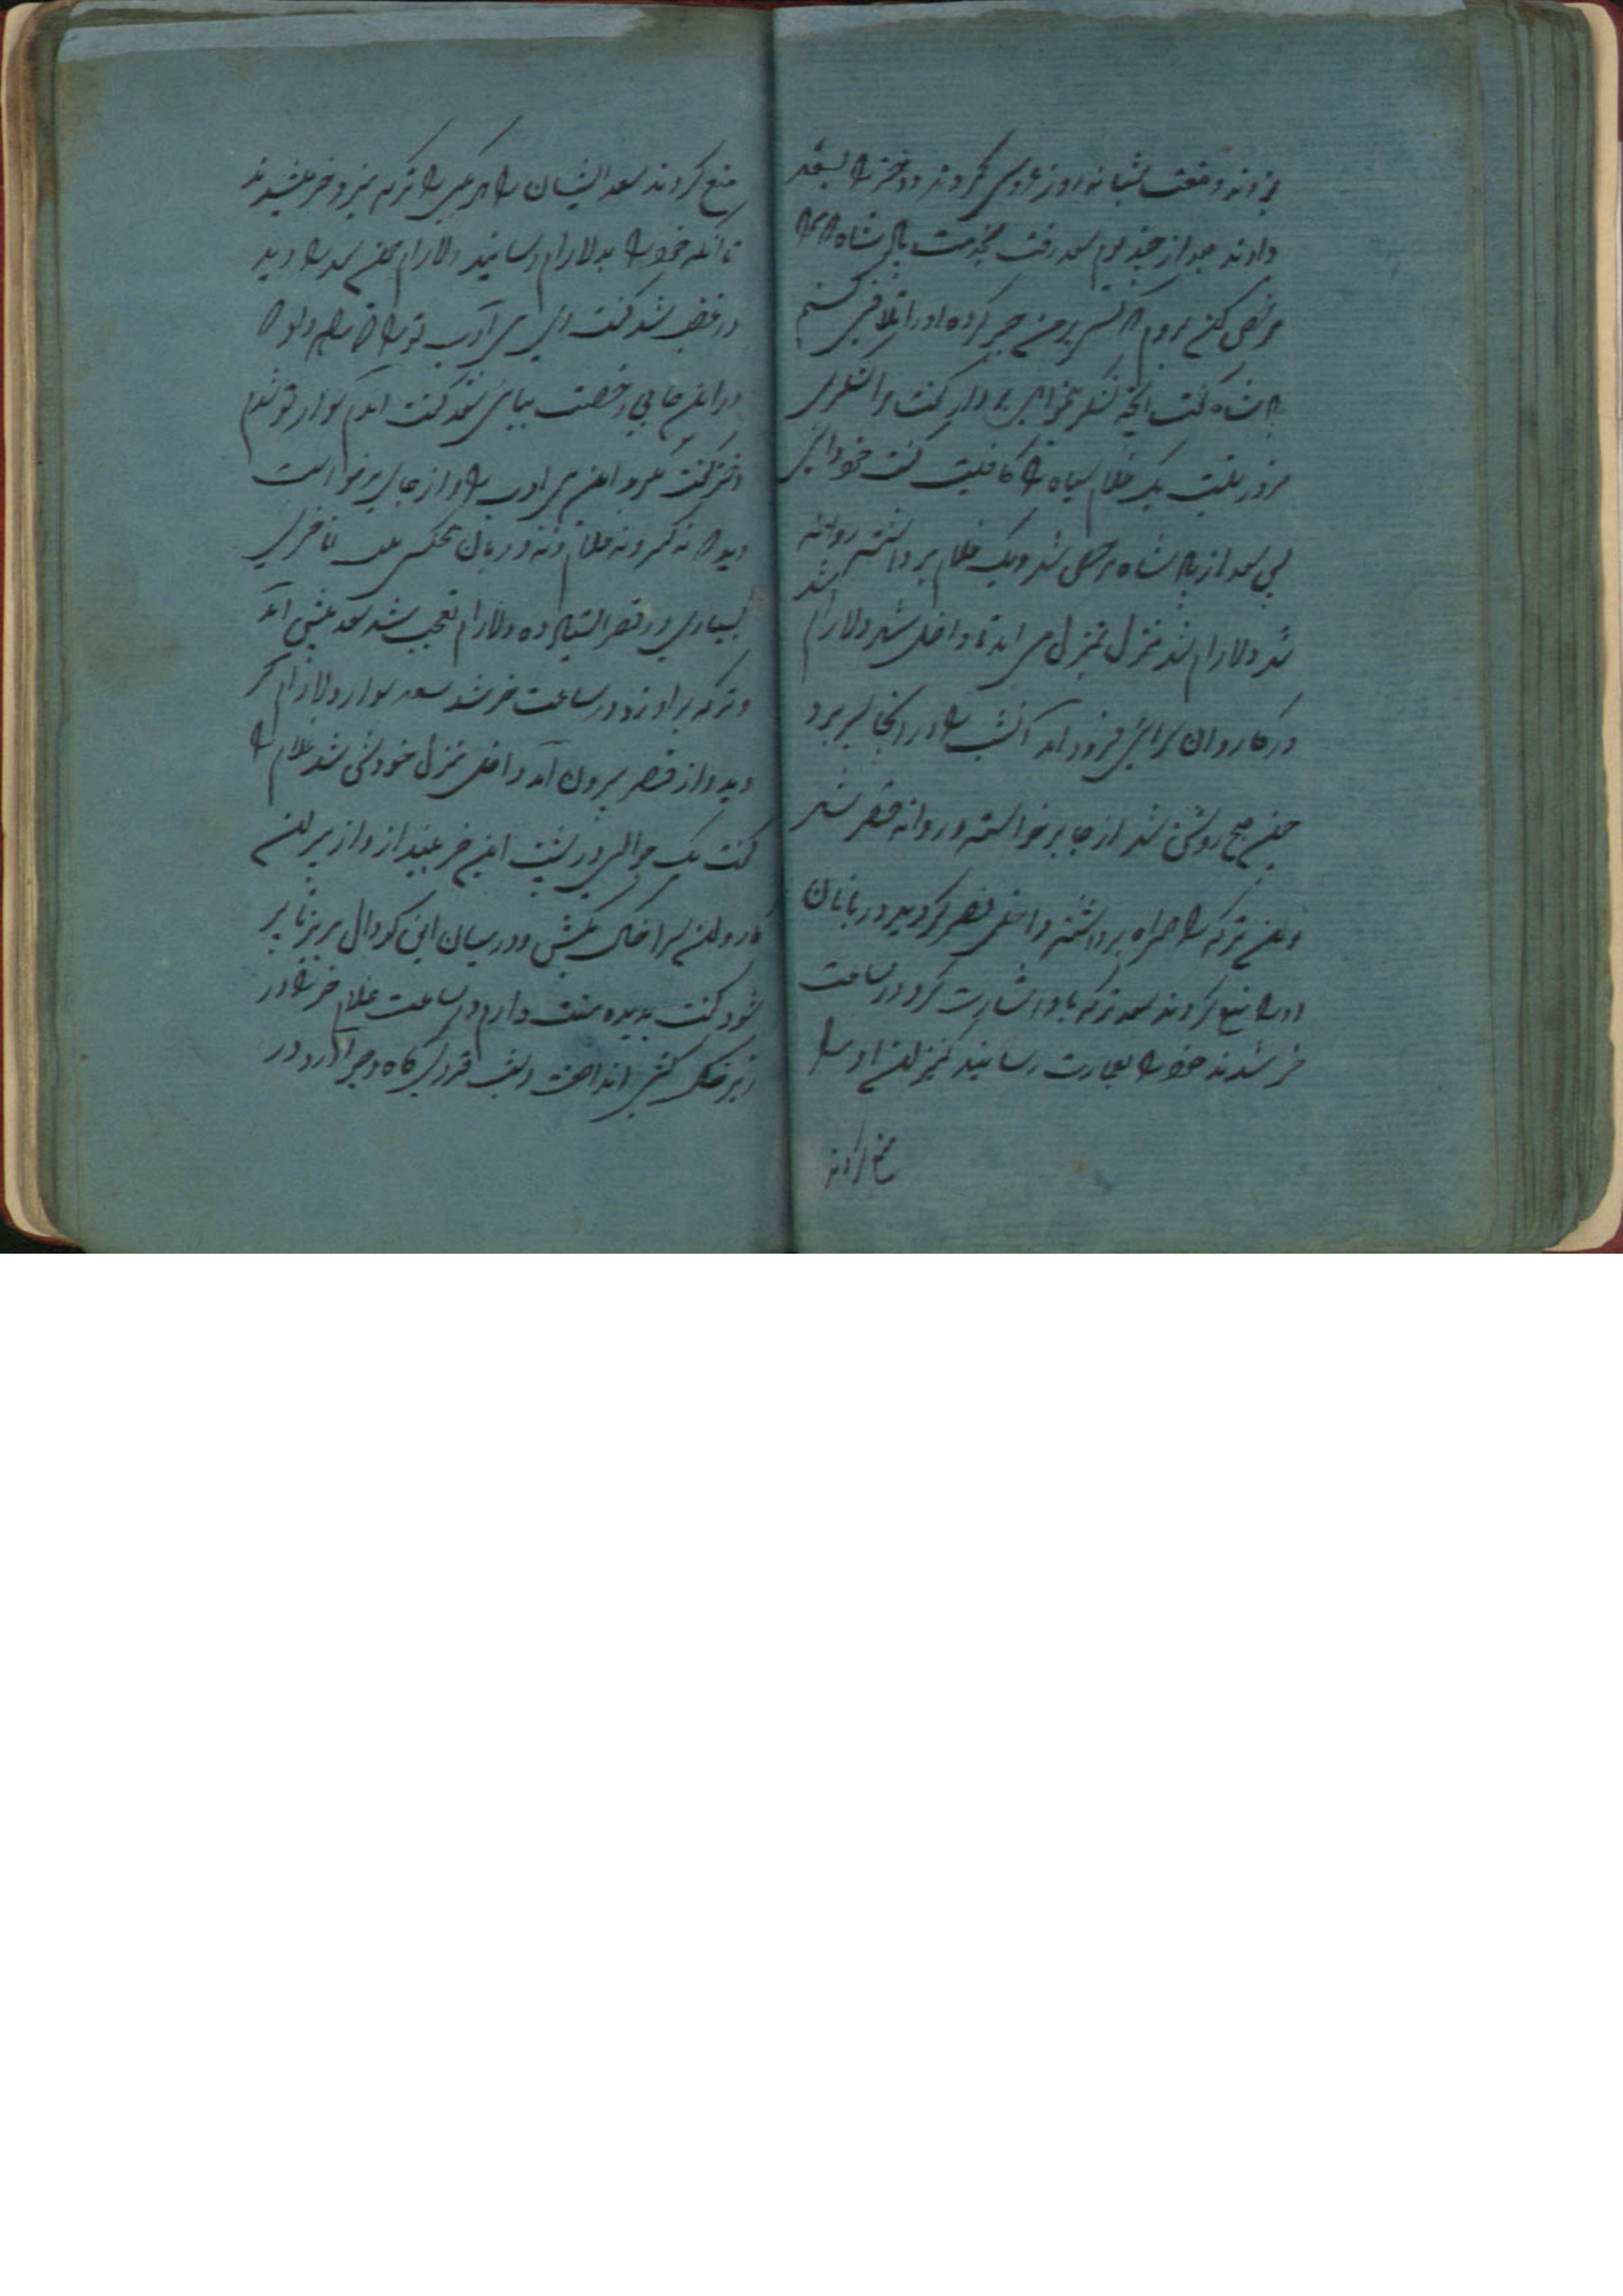 بزدند و هفت شبانه روز عروسی کردند و دختر را بسعد
دادند بعد از چند یوم سعد رفت بخدمت پادشاه که مرا
مرخص کن بروم که کسی بر من جبر کرده او را تلافی کنم
پادشاه گفت آنچه لشکر میخواهی بردار گفت مرا لشکری
ضرور نیست یک غلام سیاه مرا کافیست گفت خود دانی
پس سعد از پادشاه مرخص شد و یک غلام برداشته روانه
شهر دلارام شد منزل بمنزل می آمد تا داخل شهر دلارام شد
در کاروان سرائی فرود آمد آنشب را در آنجا بسر برد
چون صبح روشن شد از جا برخواسته و روانه قصر شد
و آن ترکه را همراه برداشته داخل قصر گردید دربانان
او را منع کردند سعد ترکه باو اشارت کرد در ساعت
خر شدند خود را بعمارت رسانید کنیزان او را
منع کردند
منع کردند سعد ایشان را هر یکی را ترکه میزد خر میشدند
تا آنکه خود را بدلارام رسانید دلارام چون سعد را دید
در غضب شد گفت ای بی ادب تو را که راه داد که
در این جا بی رخصت بیائی سعد گفت آمدم سوار تو شوم
دختر گفت بگیرید این بی ادب را و از جای برخواست
دید که نه کنیز و نه غلام و نه دربان هیچکس نیست اما خر
بسیاری در قصر ایستاده دلارام تعجب شد سعد پیش آمد
و ترکه بر او زد در ساعت خر شد سعد سوار دلارام گر
دید و از قصر بیرون آمد داخل منزل خودش شد غلام را
گفت یک جوالی در پشت این خر بینداز و از بیرون
کاروان سرا خاک بکش و در میان این گودال بریز تا پر
شود گفت بدیده منت دارم در ساعت غلام خر را در
زیر خاک کشی انداخت و شب قدری کاه و جو آورد در